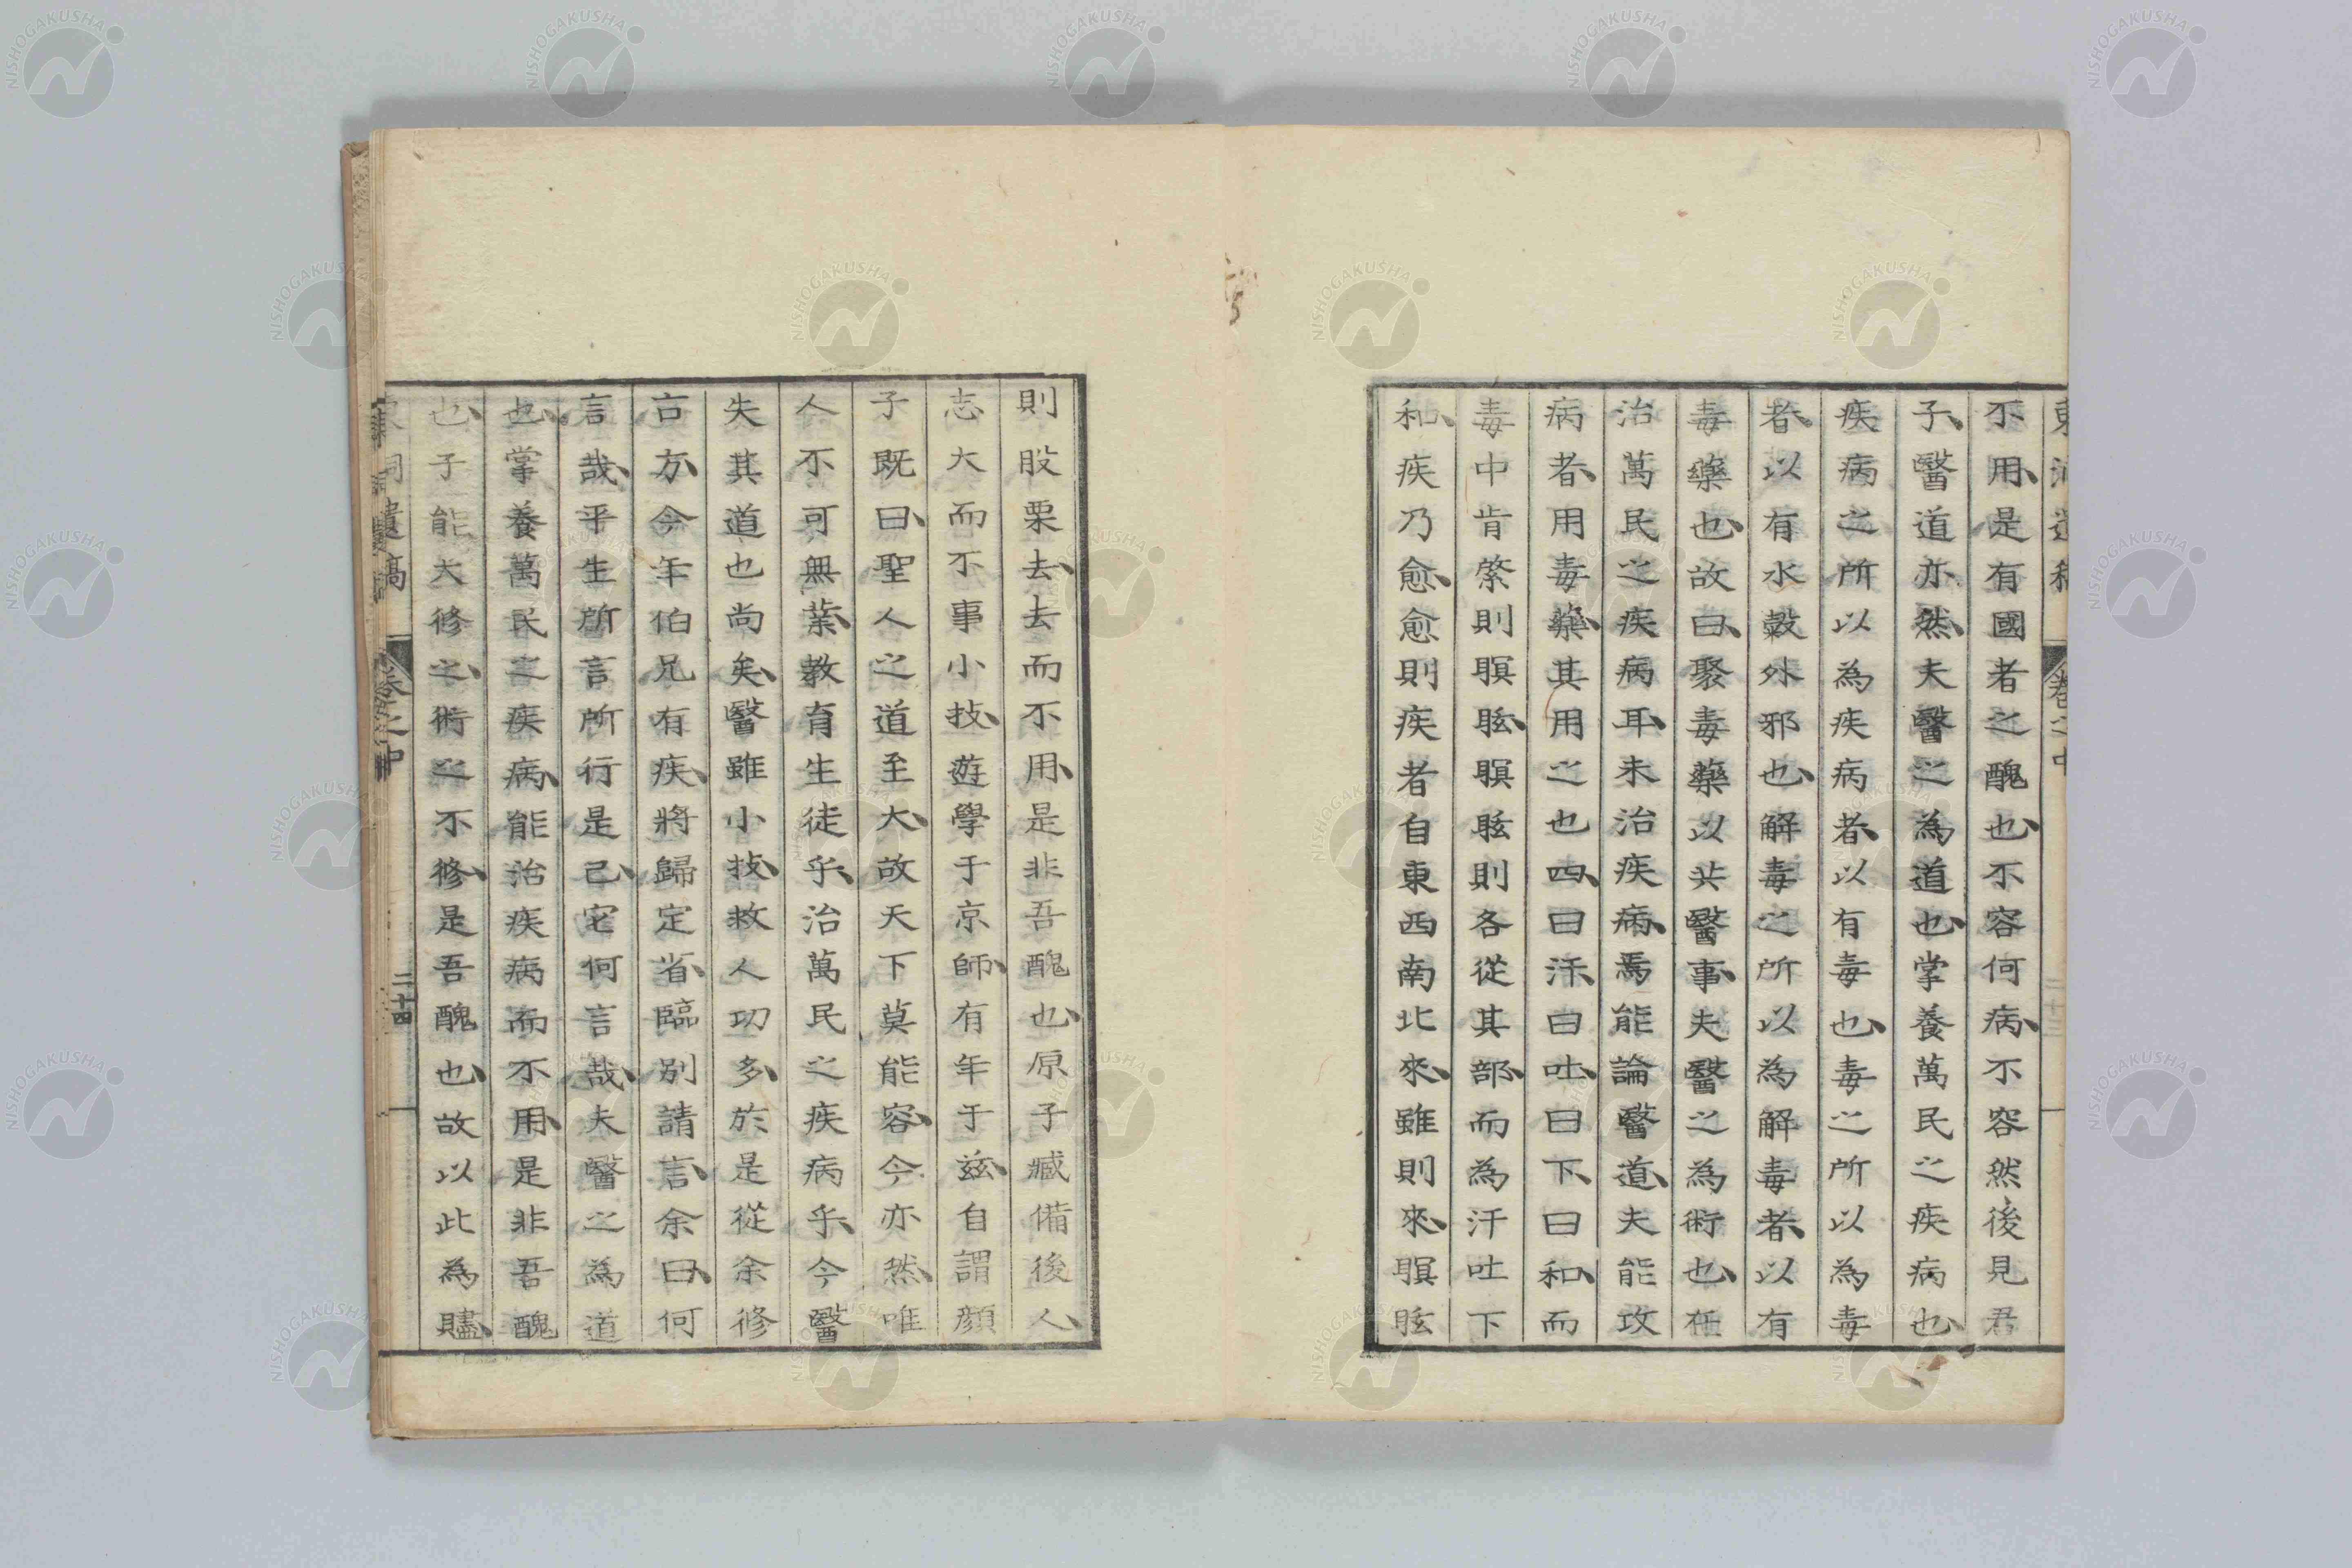 不用、是有國者之醜也、不容何病、不容然後見君
子、醫道亦然、夫醫之為道也、掌養萬民之疾病也、
疾病之所以為疾病者、以有毒也、毒之所以為毒
者、以有水穀外邪也、解毒之所以為解毒者、以有
毒藥也、故曰、聚毒藥以共醫事、夫醫之為術也、在
治萬民之疾病耳、未治疾病、焉能論醫道、夫能攻
病者、用毒藥、其用之也四、曰汗、曰吐、曰下、曰和、而
毒中肯綮則瞑眩、瞑眩則各從其部、而為汗吐下
和、疾乃愈、愈則疾者自東西南北來、雖則來、瞑眩
則股栗去、去而不用、是非吾醜也、原子臧備後人、
志大而不事小技、遊學于京師、有年于茲、自謂顏
子既曰、聖人之道至大、故天下莫能容、今亦然、唯
人不可無業、教育生徒乎、治萬民之疾病乎、今醫
失其道也尚矣、醫雖小技、救人功多、於是從余修
古方、今年伯兄有疾、將歸定省、臨別請言、余曰、何
言哉、平生所言所行是已、它何言哉、夫醫之為道
也、掌養萬民之疾病、能治疾病而不用、是非吾醜
也、子能大修之、術之不修、是吾醜也、故以此為贐、
東洞遺稿 卷之中 二十四
NISHOGAKUSHA